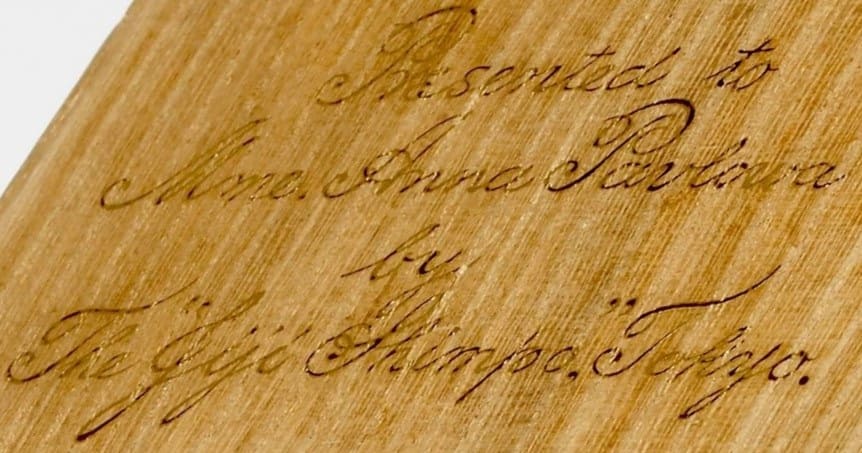 Presented to
Mme. Anna Pavlowa
by
The "Jiji Shimpo," Tokyo.